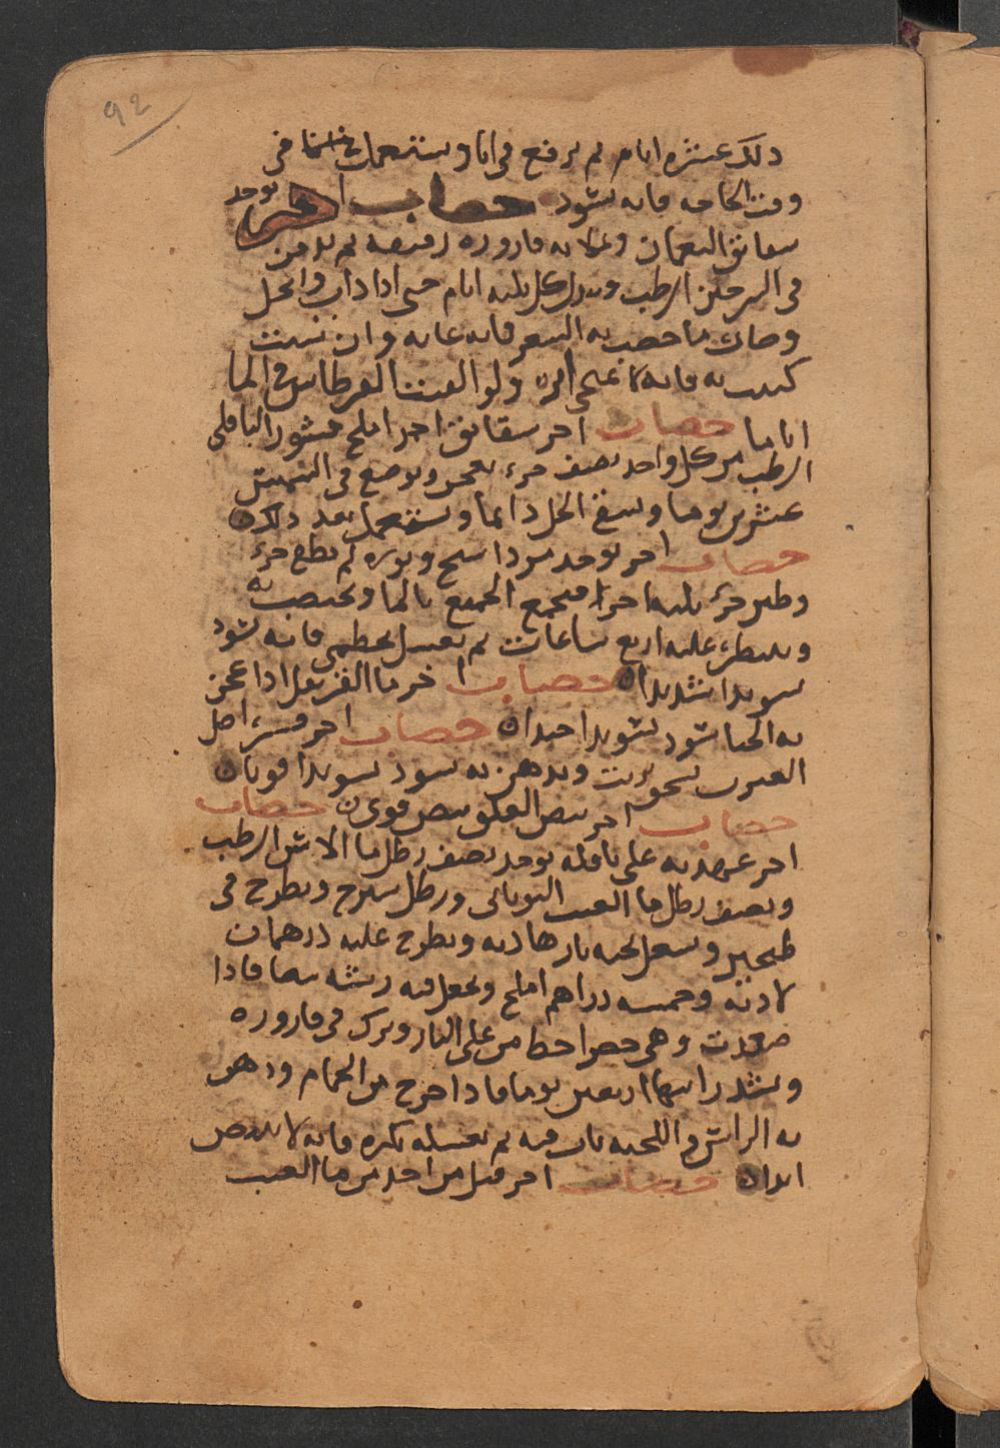 92
ذلك عشره ايام ثم يرفع في انا ويستعمل في
وقت الحاجه فانه يسود خضاب اخر يوخذ
شقايق النعمان وتملا به قاروره ثم يدفن
في السرجين الرطب ويبدل كل ثلثه ايام حتى اذا ذاب وانحل
وصار ما خضب به الشعر فانه غايه وان شيت
كتبت به فانه لا ينمحي ولو القيت القرطاس في الما
اياما خضاب اخر شقايق احمر املج قشور الباقلى
الرطب من كل واحد نصف جزء يعجن ويوضع في الشمس
عشرين يوما ويسقى الخل دايما ويستعمل بعد ذلك
خضاب اخر يوخذ مرداسنج ونوره لم تطفا جزء
وطين جزء ثلثه اجزا فيجمع الجميع بالما ويختضب به
وينتظر عليه اربع ساعات ثم يغسل بخطمي فانه يسود
تسويدا شديدا خضاب اخر ما القرنفل اذا عجن
به الحنا سود تسويدا جيدا خضاب اخر قشر اصل
بزيت ويدهن به يسود تسويدا قويا
خضاب اخر بيض بيض قوي خضاب
اخر عهد به على يوخذ نصف رطل ما الاس الرطب
ونصف رطل ما العنب ورطل شيرج ويطرح في
طنجير ويشعل تحته نار هاديه ويطرح عليه درهمان
لادنه وخمسه دراهم املج ويجعل فيه ريشه فاذا
صعدت وهي حط من على النار وترك في قاروره
ويشد راسها اربعين يوما فاذا خرج من الحمام ودهن
به الراس واللحيه بات فيه ثم يغسله بكره فانه لا
ابدا خضاب اخر من ما العنب